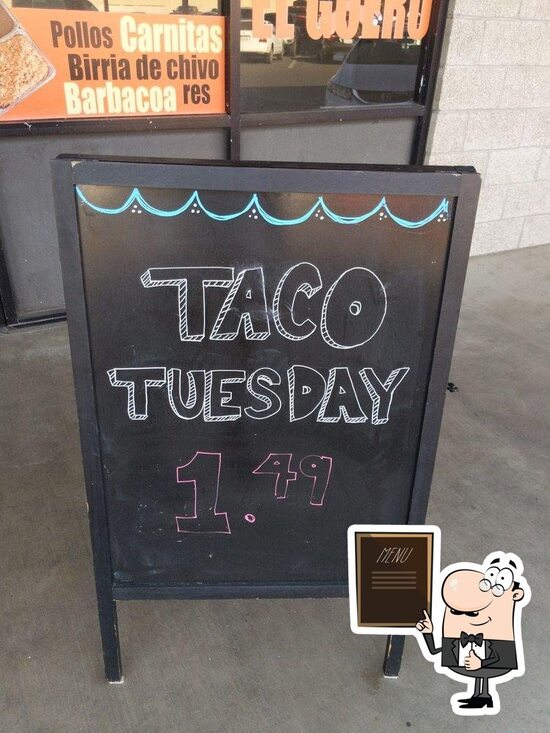 Pollos Carnitas
Birria de chivo
Barbacoa res
EL GUERO
TACO
TUESDAY
1.49
MENU